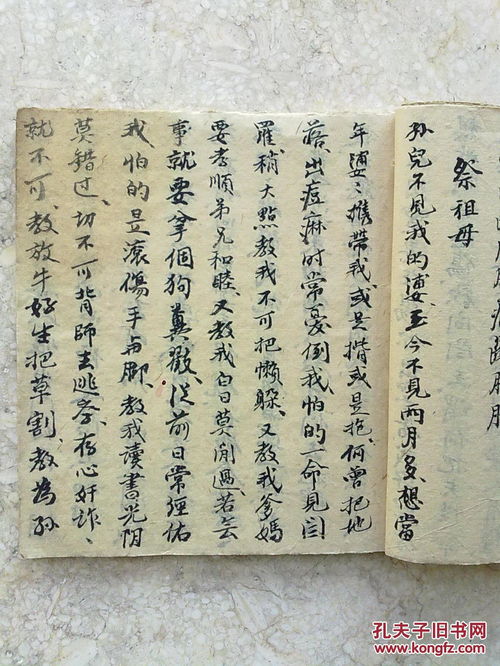 祭祖母
孙兒不見我的婆、至今不見兩月多、想當
年婆〻携帶我或是揹或是抱、何曾把地
出痘麻时常憂倒我怕的一命見閻
羅、稍大點教我不可把懶躲、又教我爹媽
要孝順弟兄和睦、又教我白日莫閒過、若云
事就要拿個狗糞、從前日常經佑
我怕的是滚傷手与脚、教我讀書光阴
莫錯过、切不可背師去逃学、存心奸詐〻
就不可、教放牛好生把草割、教為孙
孔夫子旧书网
www.kongfz.com